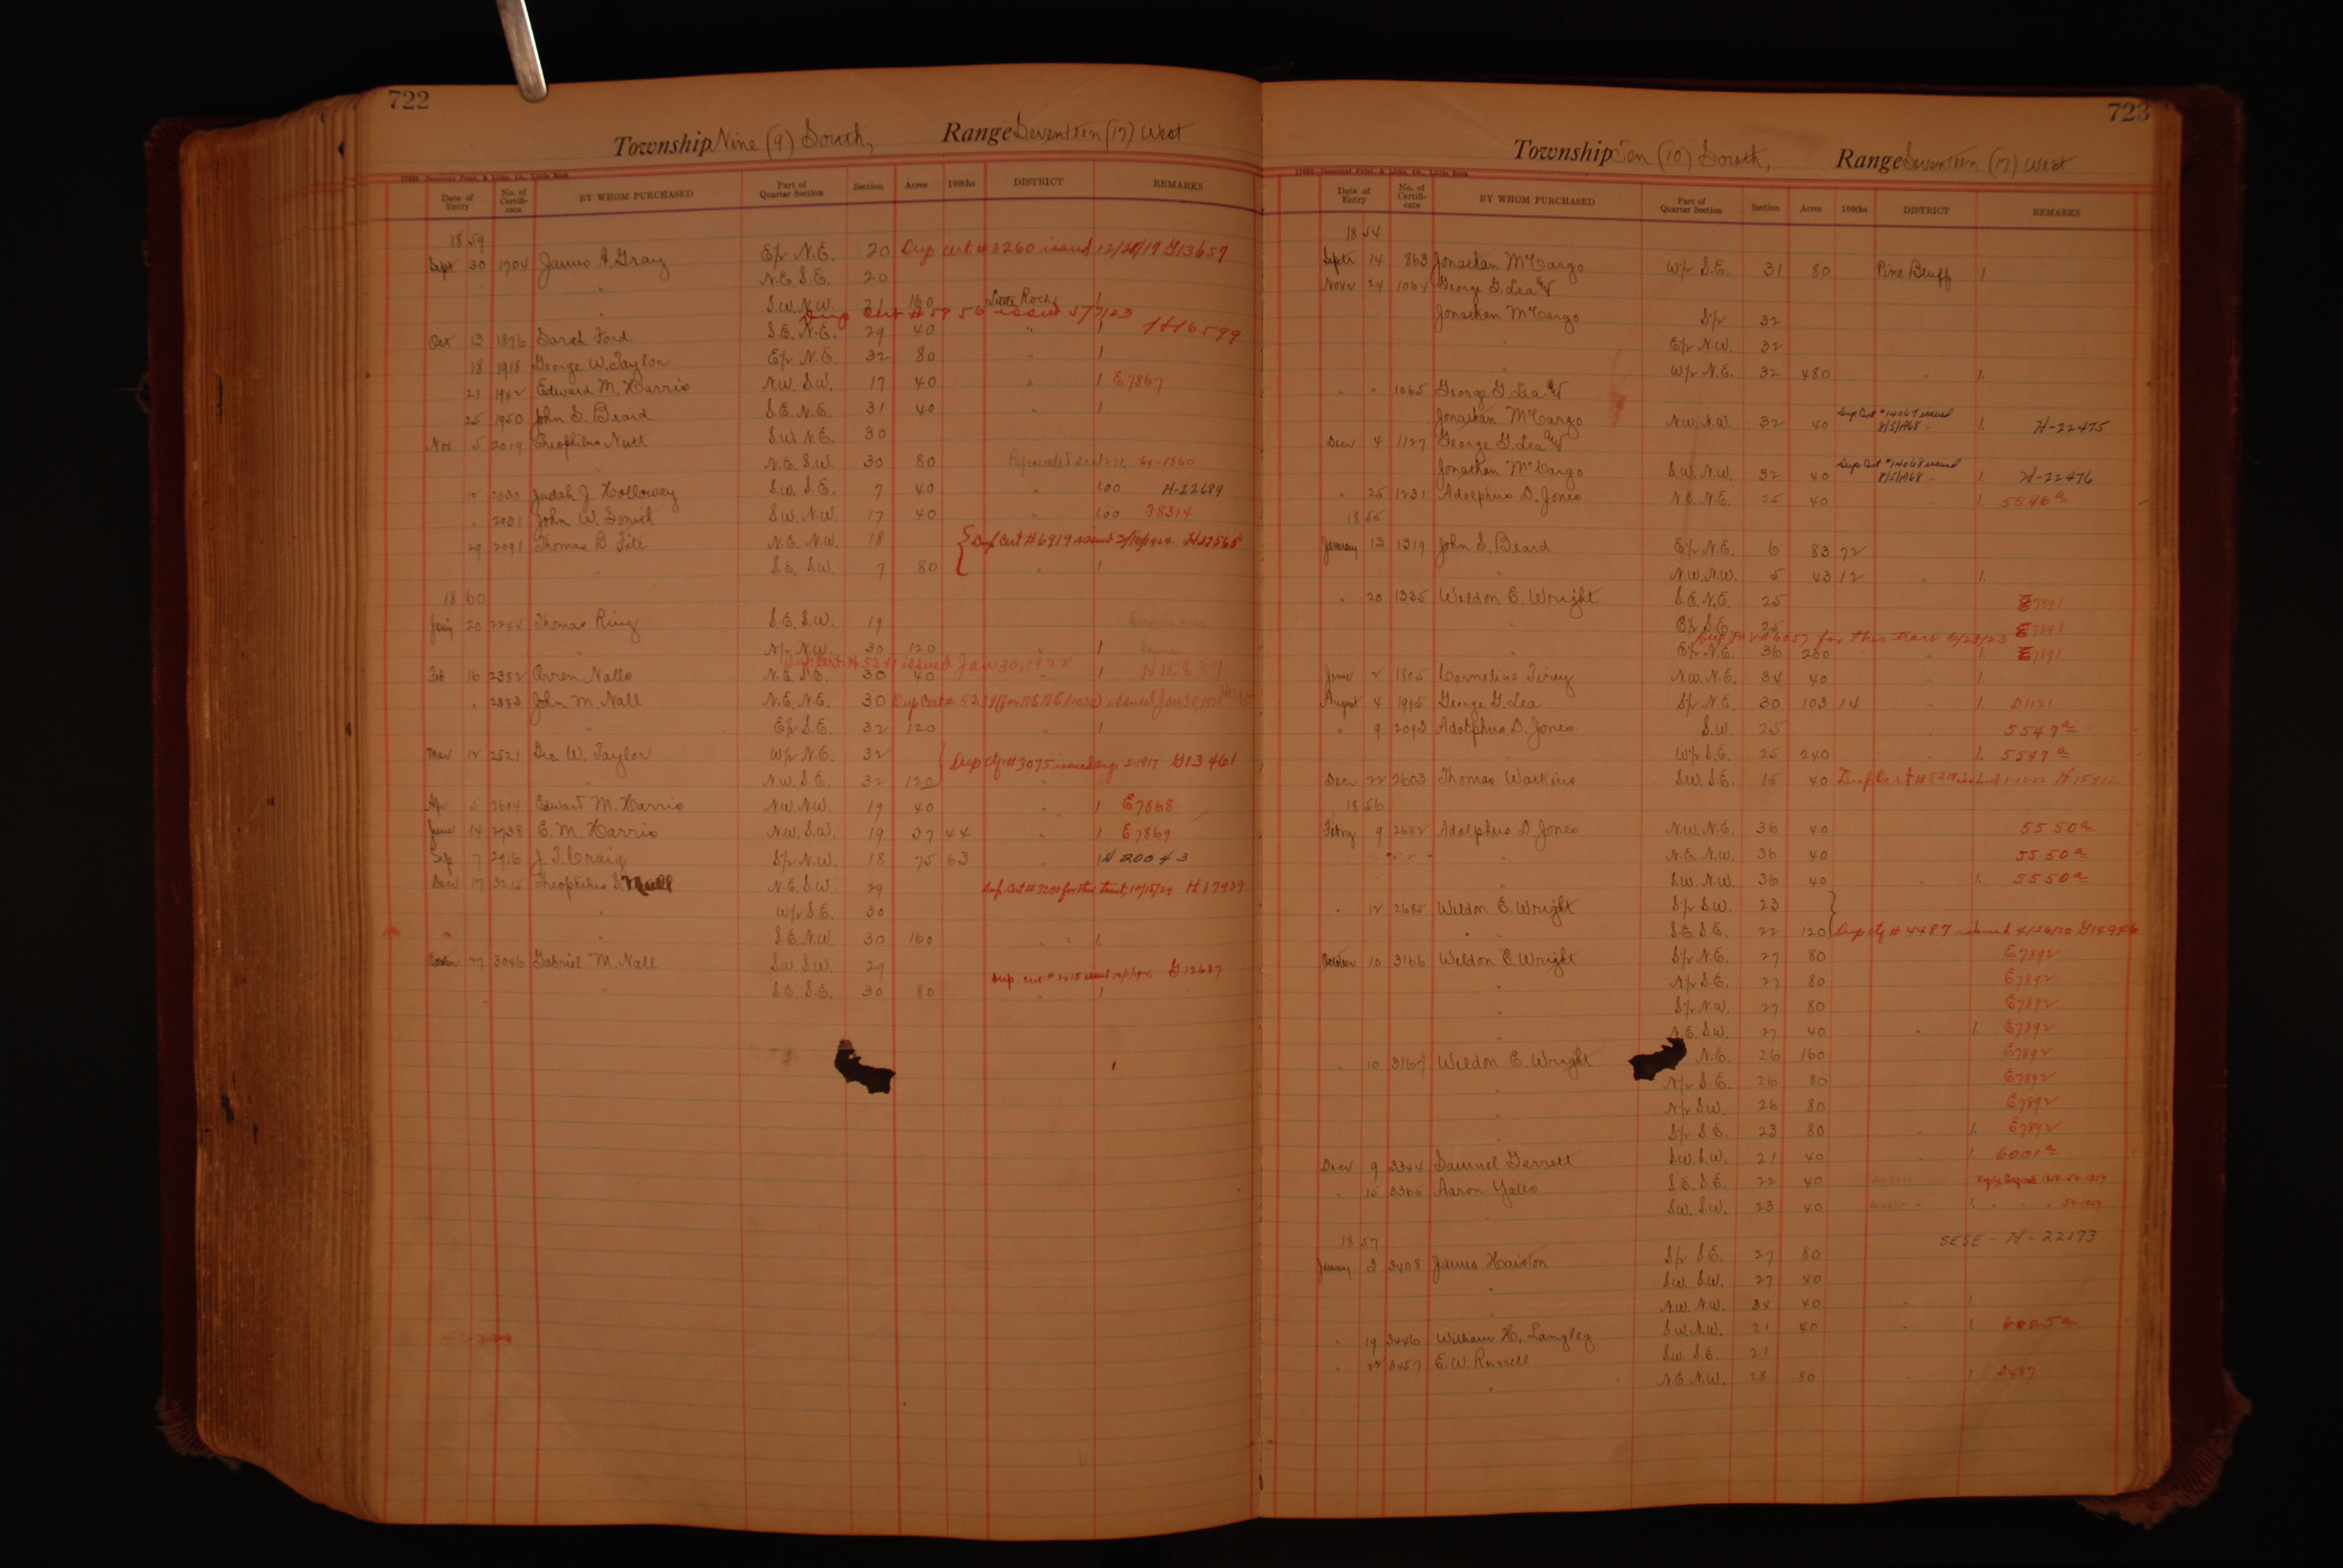 722
Township Nine (9) South, Range Seventeen (17) West
Date of Entry No. of Certificate BY WHOM PURCHASED Part of Quarter Section Section Acres 100ths DISTRICT REMARKS
1859
Sept 30 1704 James A. Gray E/2 N.E. 20 Dup cert # 3260 issued 12/20/19 G13657
" N.E. S.E. 20
" S.W. N.W. 21 160 Little Rock 1
Dup Cert # 5956 issued 5/7/23 H16599
Oct 13 1876 Sarah Ford S.E. N.E. 29 40 " 1
18 1918 George W. Taylor E/2 N.E. 32 80 " 1
21 1942 Edward M. Harris N.W. S.W. 17 40 " 1 E7867
25 1950 John S. Beard S.E. N.E. 31 40 " 1
Nov 5 2019 Theophilus Nutt S.W. N.E. 30
" N.E. S.W. 30 80 64-1860
12 2030 Judah J. Holloway S.W. S.E. 7 40 " 1.00 H-22689
" 2031 John W. Smith S.W. N.W. 17 40 " 1.00 F8314
29 2091 Thomas B Fite N.E. N.W. 18 Dup Cert # 6919 issued H17565
" S.E. S.W. 7 80 " 1
1860
Jany 20 2244 Thomas Ring S.E. S.W. 19
" N/2 N.W. 30 120 " 1
Dup Cert # 5247 issued Jan 30, 1922 H15837
Feb 16 2382 Orren Nalls N.E. S.E. 30 40 " 1
" 2383 John M. Nall N.E. N.E. 30 Dup Cert # 5231 issued Jan 30, 1922
" E/2 S.E. 32 120 " 1
Mar 12 2521 Geo. W. Taylor W/2 N.E. 32 Dup ctf # 3075 issued G13461
" N.W. S.E. 32 120
Apr 5 2604 Edward M. Harris N.W. N.W. 19 40 " 1 E7868
June 14 2738 E. M. Harris N.W. S.W. 19 37 44 " 1 E7869
Sep 7 2916 J. T. Craig S/2 N.W. 18 75 63 " 1 H 20043
Decr 17 3215 Theophilus S. Nall N.E. S.W. 29 Dup Cert # 7290 for this tract, 10/15/29 H.17939
" W/2 S.E. 30
" S.E. N.W. 30 160 " " 1
27 3046 Gabriel M. Nall S.W. S.W. 29 Dup. cert # G12687
" S.E. S.E. 30 80 " 1
723
Township Ten (10) South, Range Seventeen (17) West
Date of Entry No. of Certificate BY WHOM PURCHASED Part of Quarter Section Section Acres 100ths DISTRICT REMARKS
1854
Septr 14 863 Jonathan McCargo W/2 S.E. 31 80 Pine Bluff 1
Novr 24 1064 George G. Lea &
Jonathan McCargo S/2 32
" E/2 N.W. 32
" W/2 N.E. 32 480 " 1.
" " 1065 George G. Lea &
Jonathan McCargo N.W. N.W. 32 40 Dup Cert #14067 issued 8/5/1968 1. H-22475
Decr 4 1127 George G. Lea &
Jonathan McCargo S.W. N.W. 32 40 Dup Cert #14068 issued 8/5/1968 1. H-22476
" 25 1231 Adolphus D. Jones N.E. N.E. 25 40 " 1. 5546 a
1855
January 12 1319 John S. Beard E/2 N.E. 6 83 72
" N.W. N.W. 5 43 12 " 1.
" 20 1335 Weldon E. Wright S.E. N.E. 25 E7891
" E/2 S.E. 25 E7891
for this tract 6/28/23
" E/2 N.E. 36 200 " 1. E7891
June 2 1805 Cornelius Tirey N.W. N.E. 34 40 " 1.
August 4 1995 George G. Lea S/2 N.E. 30 103 14 " 1. D1121
" 9 2093 Adolphus D. Jones S.W. 25 5547 a
" W/2 S.E. 25 240 " 1. 5547 a
Decr 22 2603 Thomas Watkins S.W. S.E. 15 40 Dup Cert # H15812
1856
Febry 9 2682 Adolphus D. Jones N.W. N.E. 36 40 5550 a
" N.E. N.W. 36 40 5550 a
" S.W. N.W. 36 40 " 1. 5550 a
" 12 2685 Weldon E. Wright S/2 S.W. 23
" S.E. S.E. 22 120 Dup ctf # 4487 issued 4/26/20 G14946
October 10 3166 Weldon E. Wright S/2 N.E. 27 80 E7892
" N/2 S.E. 27 80 E7892
" S/2 N.W. 27 80 E7892
" N.E. S.W. 27 40 " 1. E7892
" 10 3167 Weldon E. Wright N.E. 26 160 E7892
" N/2 S.E. 26 80 E7892
" N/2 S.W. 26 80 E7892
" S/2 S.E. 23 80 " 1. E7892
Decr 9 3344 Samuel Garrett S.W. S.W. 21 40 " 1. 6001 a
" 15 3365 Aaron Yates S.E. S.E. 22 40
" S.W. S.W. 23 40
SESE - H - 22173
1857
January 3 3408 James Hairston S/2 S.E. 27 80
" S.W. S.W. 27 40
" N.W. N.W. 34 40 " 1.
" 19 3446 William H. Langley S.W. N.W. 21 40 " 1. 6005 a
" 22 3457 E. W. Russell S.W. S.E. 21
" N.E. N.W. 28 80 " 1 D487